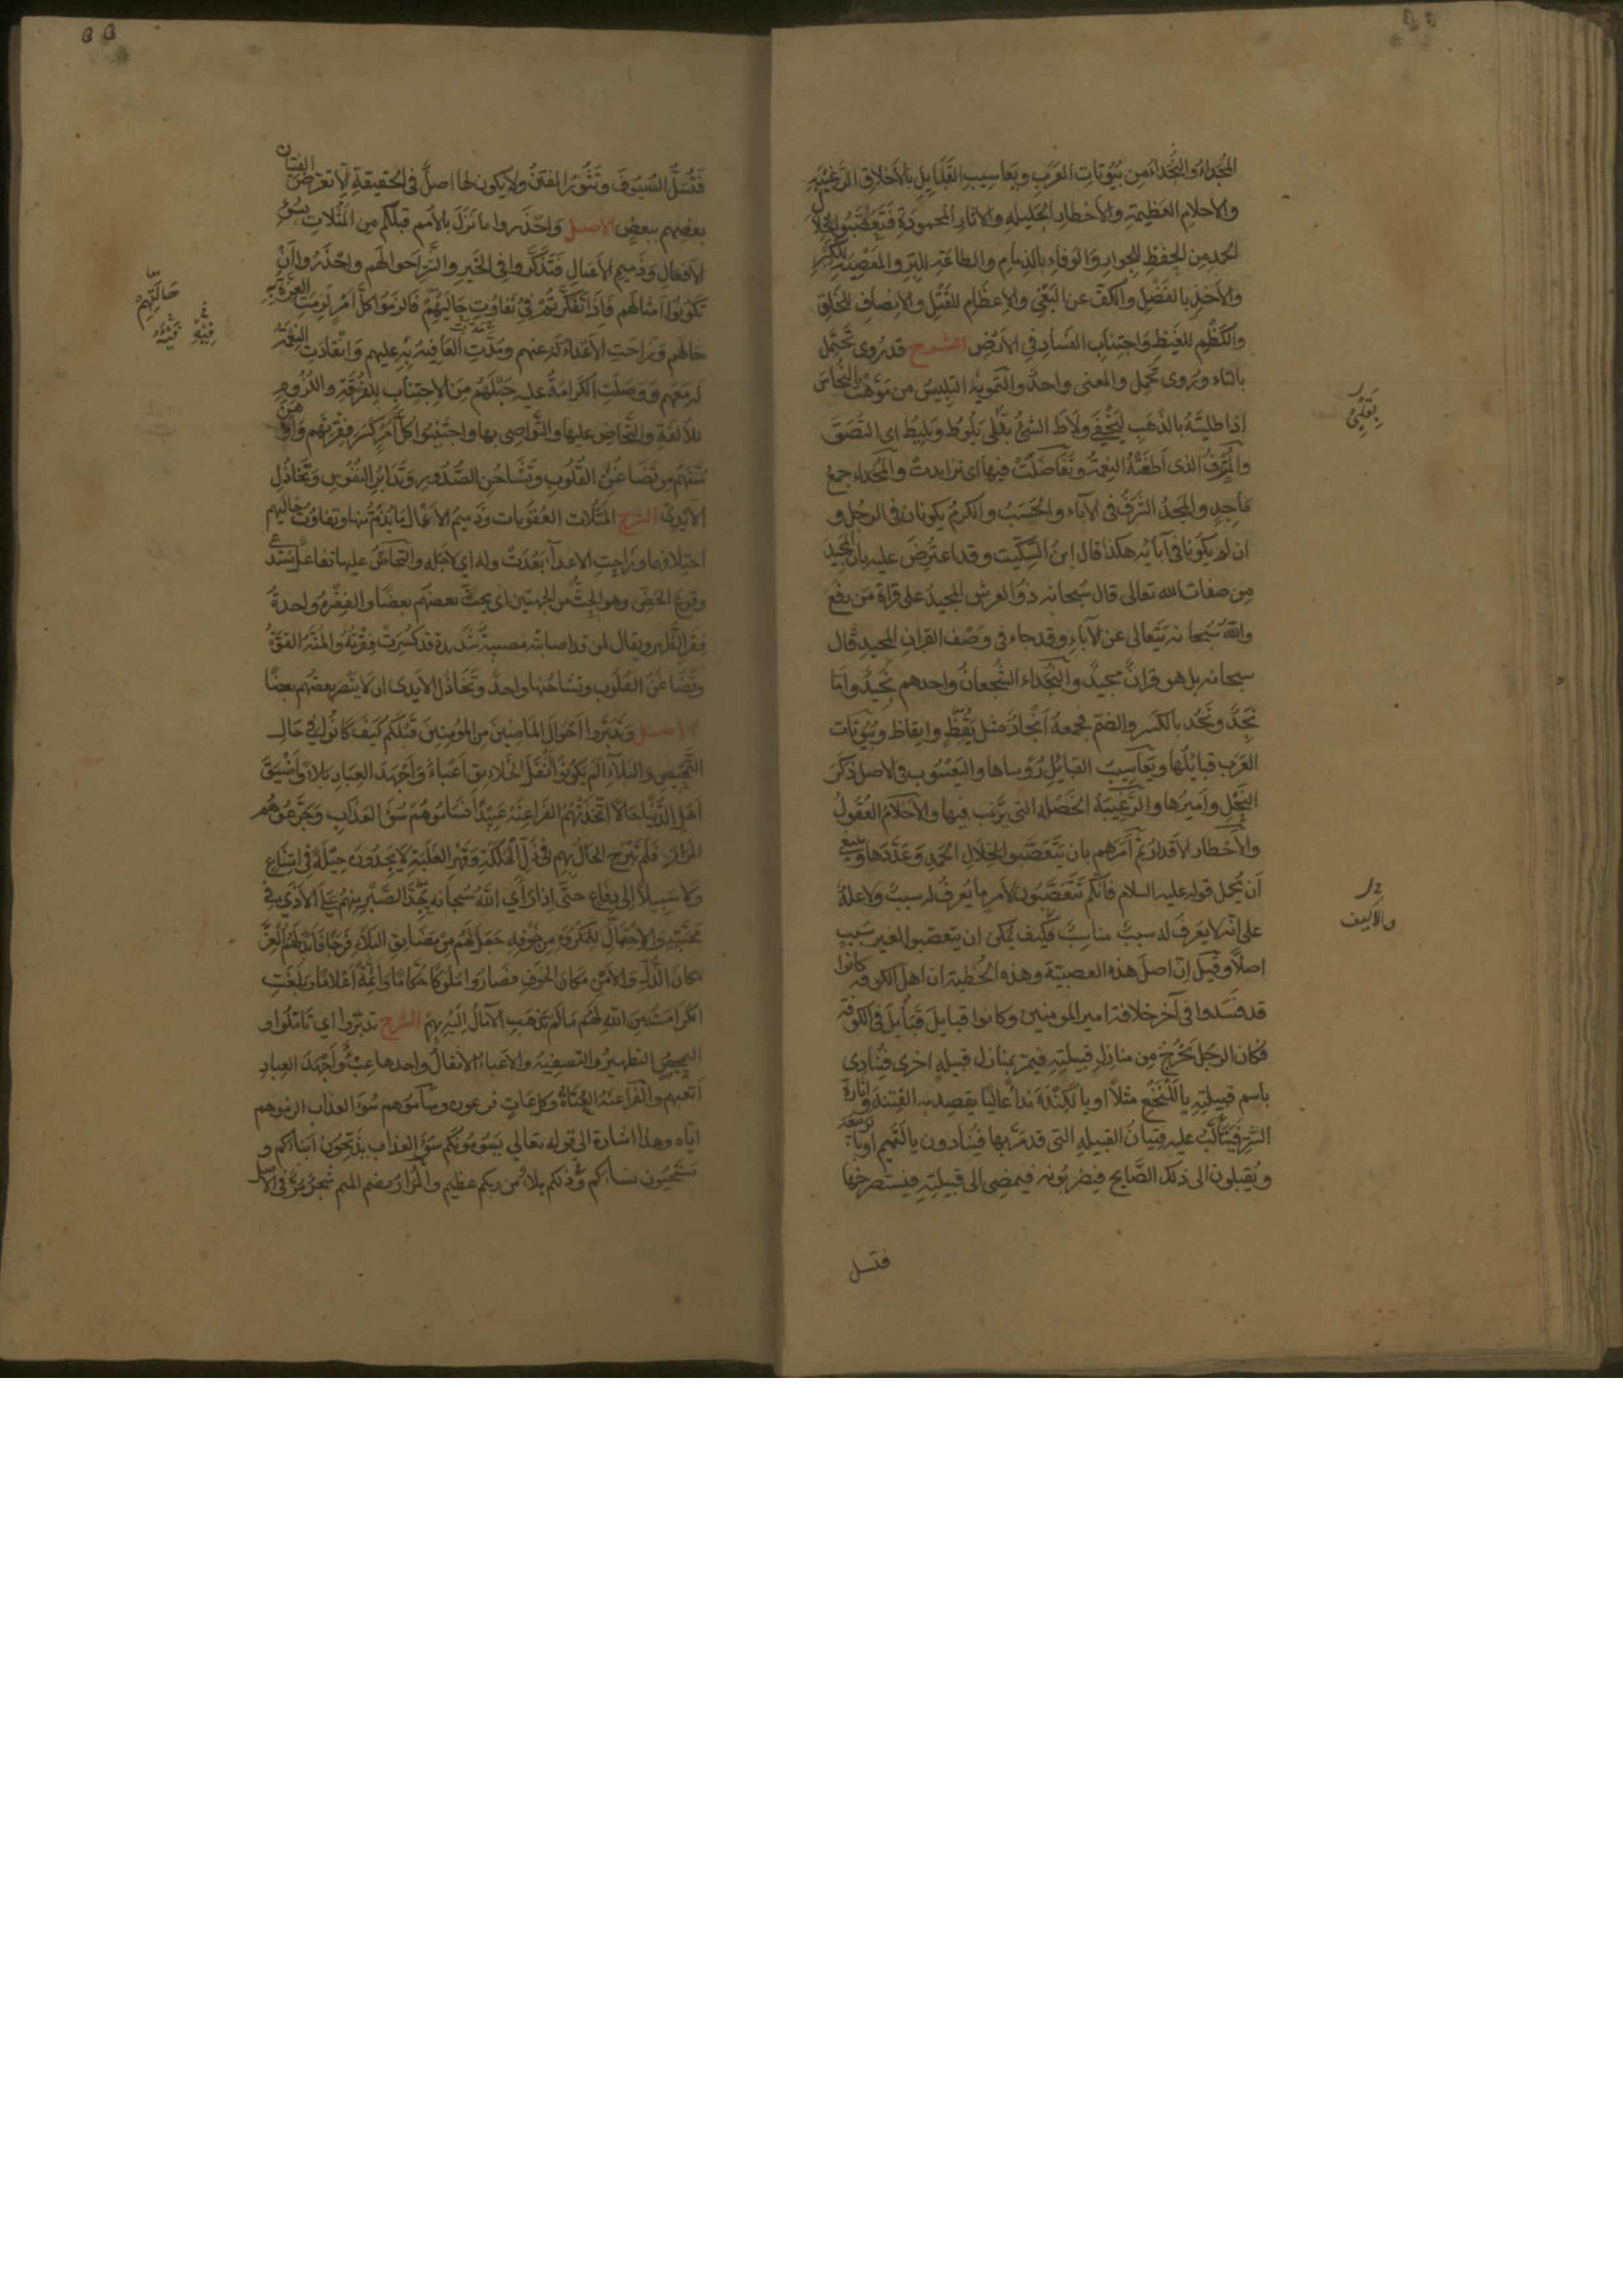 المجداء والنجداء من بيوتات العرب ويعاسيب القبايل بالاخلاق الرغيبة
والاحلام العظيمة والاخطار الجليلة والاثار المحمودة فتعصبوا لخلال
الحمد من الحفظ للجوار والوفاء بالذمام والطاعة للبر والمعصية للكبر
والاخذ بالفضل والكف عن البغي والاعظام للقتل والانصاف للخلق
والكظم للغيظ واجتناب الفساد في الارض الشرح قد روى تحتمل
بالتاء ويروى تحمل والمعنى واحد والتمويه التلبيس من موهت النحاس
اذا طليته بالذهب ليخفى ولاط الشئ بقلبي يلوط ويليط اي التصق
والمترف الذى اطغته النعمة وتفاضلت فيها اي تزايدت والمجداء جمع
ماجد والمجد الشرف فى الآباء والحسب والكرم يكونان فى الرجل و
ان لم يكونا فى آبائه هكذا قال ابن السكيت وقد اعترض عليه بان المجيد
من صفات الله تعالى قال سبحانه ذو العرش المجيد على قراة من رفع
والله سبحانه يتعالى عن الآباء وقد جاء فى وصف القران المجيد قال
سبحانه بل هو قران مجيد والنجداء الشجعان واحدهم نجيد واما
نجد ونجد بالكسر والضم فجمعه انجاد مثل يقظ وايقاظ وبيوتات
العرب قبائلها ويعاسيب القبائل رؤساها واليعسوب فى الاصل ذكر
النحل واميرها والرغيبة الخصلة التى يرغب فيها والاحلام العقول
والاخطار الاقدار ثم امرهم بان يتعصبوا لخلال الحمد وعددها وينبغي
ان يحمل قوله عليه السلام فانكم تتعصبون لامر ما يعرف له سبب ولا علة
على انه لا يعرف له سبب مناسب فكيف يمكن ان يتعصبوا لغير سبب
اصلا وقيل ان اصل هذه العصبية وهذه الخطبة ان اهل الكوفة كانوا
قد فسدوا فى آخر خلافة امير المومنين وكانوا قبايل قبايل فى الكوفة
فكان الرجل يخرج من منازل قبيلته فيمر بمنازل قبيلة اخرى فينادى
باسم قبيلته يا للنخع مثلا او يا لكندة نداء عاليا يقصد به الفتنة واثارة
الشر فيتألب عليه فتيان القبيلة التى قد مر بها فينادون يا لتميم او يا لربيعة
ويقبلون الى ذلك الصايح فيضربونه فيمضى الى قبيلته فيستصرخها
فتسل
بقلبي
والاليف
فتسل السيوف وتثور الفتن ولا يكون لها اصل فى الحقيقة الا تعرض الفتيان
بعضهم ببعض الاصل واحذروا ما نزل بالامم قبلكم من المثلات بسوء
الافعال وذميم الاعمال فتذكروا فى الخير والشر احوالهم واحذروا ان
تكونوا امثالهم فاذا تفكرتم فى تفاوت حاليهم فالزموا كل امر لزمت العزة به
حالهم وزاحت الاعداء له عنهم ومدت العافية به عليهم وانقادت النعمة
له معهم ووصلت الكرامة عليه حبلهم من الاجتناب للفرقة واللزوم
للالفة والتحاض عليها والتواصى بها واجتنبوا كل امر كسر فقرتهم واوهن
منتهم من تضاغن القلوب وتشاحن الصدور وتدابر النفوس وتخاذل
الايدى الشرح المثلات العقوبات وذميم الافعال ما يذم منها وتفاوت حاليهم
اختلافهما وزاحت الاعداء بعدت وله اي لاجله والتحاض عليها تفاعل يستدعي
وقوع الحض وهو الحث من الجهتين اى يحث بعضهم بعضا والفقرة واحدة
فقر الظهر ويقال لمن قد اصابته مصيبة شديدة قد كسرت فقرته والمنة القوة
وتضاغن القلوب وتشاحنها واحد وتخاذل الايدى ان لا ينصر بعضهم بعضا
الاصل وتدبروا احوال الماضين من المؤمنين قبلكم كيف كانوا فى حال
التمحيص والبلاء الم يكونوا اثقل الخلايق اعباء واجهد العباد بلاء واضيق
اهل الدنيا حالا اتخذتهم الفراعنة عبيدا فساموهم سوء العذاب وجرعوهم
المرار فلم تبرح الحال بهم فى ذل الهلكة وقهر الغلبة لا يجدون حيلة فى امتناع
ولا سبيلا الى دفاع حتى اذا راى الله سبحانه جد الصبر منهم على الاذى فى
محبته والاحتمال للمكروه من خوفه جعل لهم من مضايق البلاء فرجا فابدلهم العز
مكان الذل والامن مكان الخوف فصاروا ملوكا حكاما وائمة اعلاما وبلغت
الكرامة من الله لهم ما لم تذهب الآمال اليه بهم الشرح تدبروا اي تاملوا و
التمحيص التطهير والتصفية والاعباء الاثقال واحدها عبء واجهد العباد
اتعبهم والفراعنة العتاة وكل عات فرعون وساموهم سوء العذاب الزموهم
اياه وهذا اشارة الى قوله تعالى يسومونكم سوء العذاب يذبحون ابناءكم و
يستحيون نساءكم وفى ذلكم بلاء من ربكم عظيم والمرار بضم الميم شجر مر فى الاصل
حالتهم
فيئه